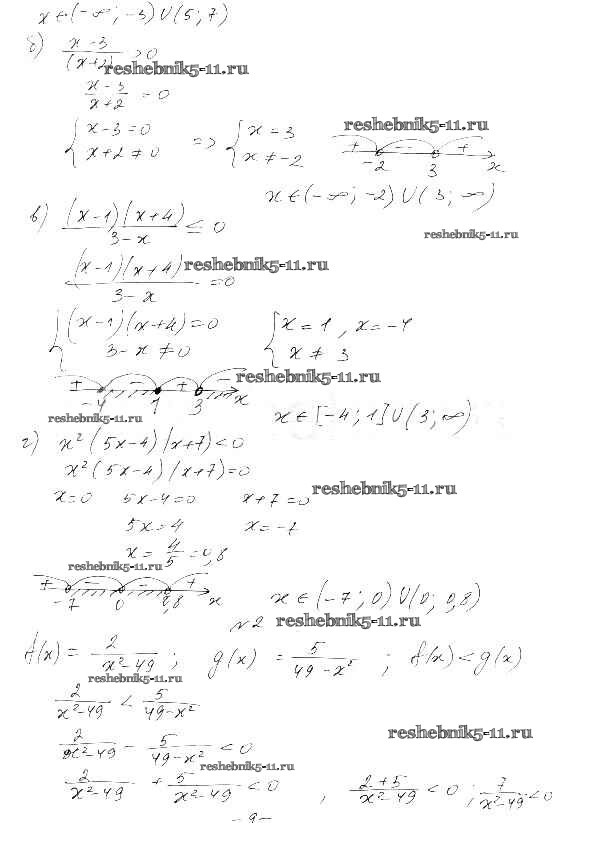 x ∈ (-∞; -3) U (5; 7)
б) (x-3)/(x+2) > 0
reshebnik5-11.ru
(x-3)/(x+2) = 0
reshebnik5-11.ru
{ x-3=0 => { x=3
{ x+2≠0 { x≠-2
+ - +
-2 3 x
x ∈ (-∞; -2) U (3; ∞)
в) (x-1)(x+4)/(3-x) ≤ 0
reshebnik5-11.ru
(x-1)(x+4)/(3-x) = 0
reshebnik5-11.ru
{ (x-1)(x+4)=0 { x=1, x=-4
{ 3-x≠0 { x≠3
reshebnik5-11.ru
+ - + -
-4 1 3 x
reshebnik5-11.ru
x ∈ [-4; 1] U (3; ∞)
г) x²(5x-4)(x+7)<0
x²(5x-4)(x+7)=0
reshebnik5-11.ru
x=0 5x-4=0 x+7=0
5x=4 x=-7
x=4/5=0,8
reshebnik5-11.ru
+ - - +
-7 0 0,8 x
x ∈ (-7; 0) U (0; 0,8)
№2 reshebnik5-11.ru
f(x) = 2/(x²-49); g(x) = 5/(49-x²); f(x)<g(x)
reshebnik5-11.ru
2/(x²-49) < 5/(49-x²)
reshebnik5-11.ru
2/(x²-49) - 5/(49-x²) < 0
reshebnik5-11.ru
2/(x²-49) + 5/(x²-49) < 0, (2+5)/(x²-49) < 0; 7/(x²-49) < 0
- 9 -